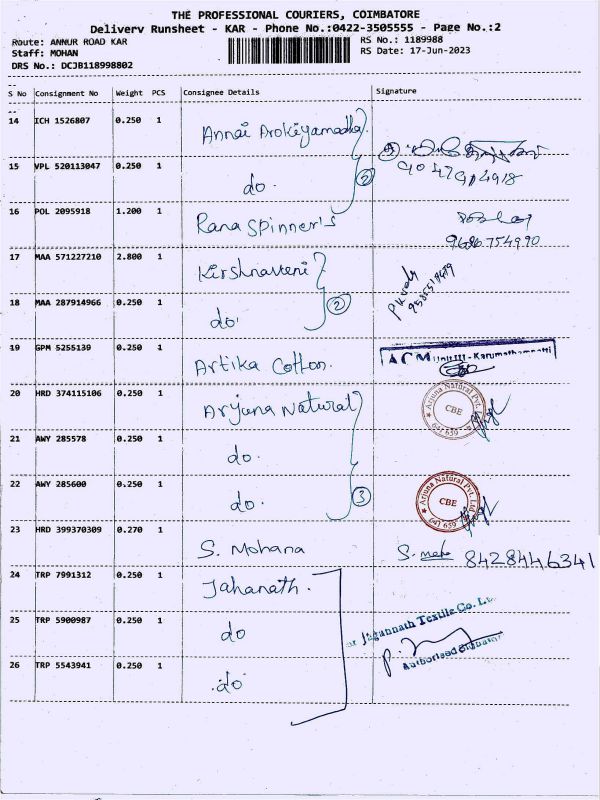 THE PROFESSIONAL COURIERS, COIMBATORE
Delivery Runsheet - KAR - Phone No.:0422-3505555 - Page No.:2
Route: ANNUR ROAD KAR
RS No.: 1189988
Staff: MOHAN
RS Date: 17-Jun-2023
DRS No.: DCJB118998802
S No Consignment No Weight PCS Consignee Details Signature
14 ICH 1526807 0.250 1 Annai Arokiyamadha
15 VPL 520113047 0.250 1 do. 2
16 POL 2095918 1.200 1 Rana Spinner's
9686754990
17 MAA 571227210 2.800 1 Kirshnaveni
18 MAA 287914966 0.250 1 do. 2
19 GPM 5255139 0.250 1 Artika Cotton. ACM Unit III - Karumathampatti
20 HRD 374115106 0.250 1 Arjuna Natural Arjuna Natural Pvt. CBE 641 659
21 AWY 285578 0.250 1 do.
22 AWY 285600 0.250 1 do. 3 Arjuna Natural Pvt. Ltd CBE 641 659
23 HRD 399370309 0.270 1 S. Mohana 8428446341
24 TRP 7991312 0.250 1 Jahanath.
25 TRP 5900987 0.250 1 do Jagannath Textile Co. Ltd
26 TRP 5543941 0.250 1 do Authorised Signatory